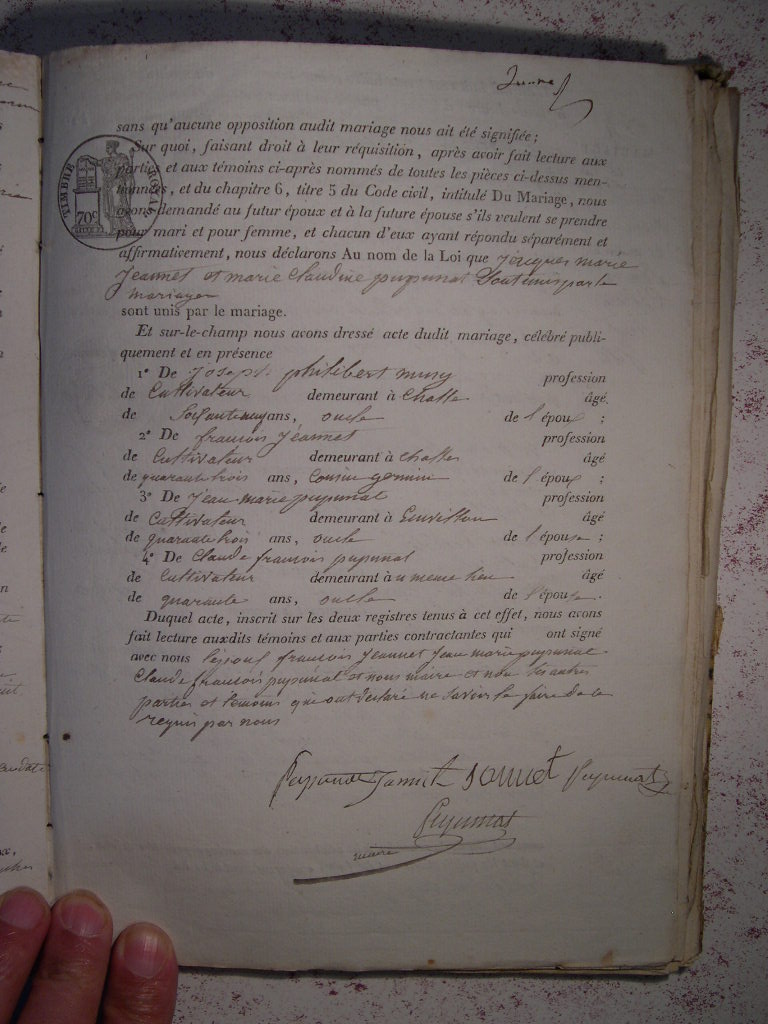 sans qu'aucune opposition audit mariage nous ait été signifiée ;
Sur quoi, faisant droit à leur réquisition, après avoir fait lecture aux
parties et aux témoins ci-après nommés de toutes les pièces ci-dessus men-
tionnées, et du chapitre 6, titre 5 du Code civil, intitulé Du Mariage, nous
avons demandé au futur époux et à la future épouse s'ils veulent se prendre
pour mari et pour femme, et chacun d'eux ayant répondu séparément et
affirmativement, nous déclarons Au nom de la Loi que jacques marie
Jeannet et marie Claudine pupunat Sont unis par le
mariage
TIMBRE ROYAL
70c
sont unis par le mariage.
Et sur-le-champ nous avons dressé acte dudit mariage, célébré publi-
quement et en présence
1° De Joseph philibert profession
de Cultivateur demeurant à âgé
de ans, oncle de l'époux ;
2° De francois Jeannet profession
de Cultivateur demeurant à âgé
de quarante trois ans, Cousin germain de l'époux ;
3° De Jean marie pupunat profession
de Cultivateur demeurant à âgé
de quarante trois ans, oncle de l'épouse ;
4° De Claude francois pupunat profession
de Cultivateur demeurant à u meme lieu âgé
de quarante ans, oncle de l'épouse.
Duquel acte, inscrit sur les deux registres tenus à cet effet, nous avons
fait lecture auxdits témoins et aux parties contractantes qui ont signé
avec nous francois Jeannet Jean marie pupunat
Claude francois pupunat et nous maire et non les autres
parties et temoins que ont declaré ne savoir le faire de ce
requis par nous
maire